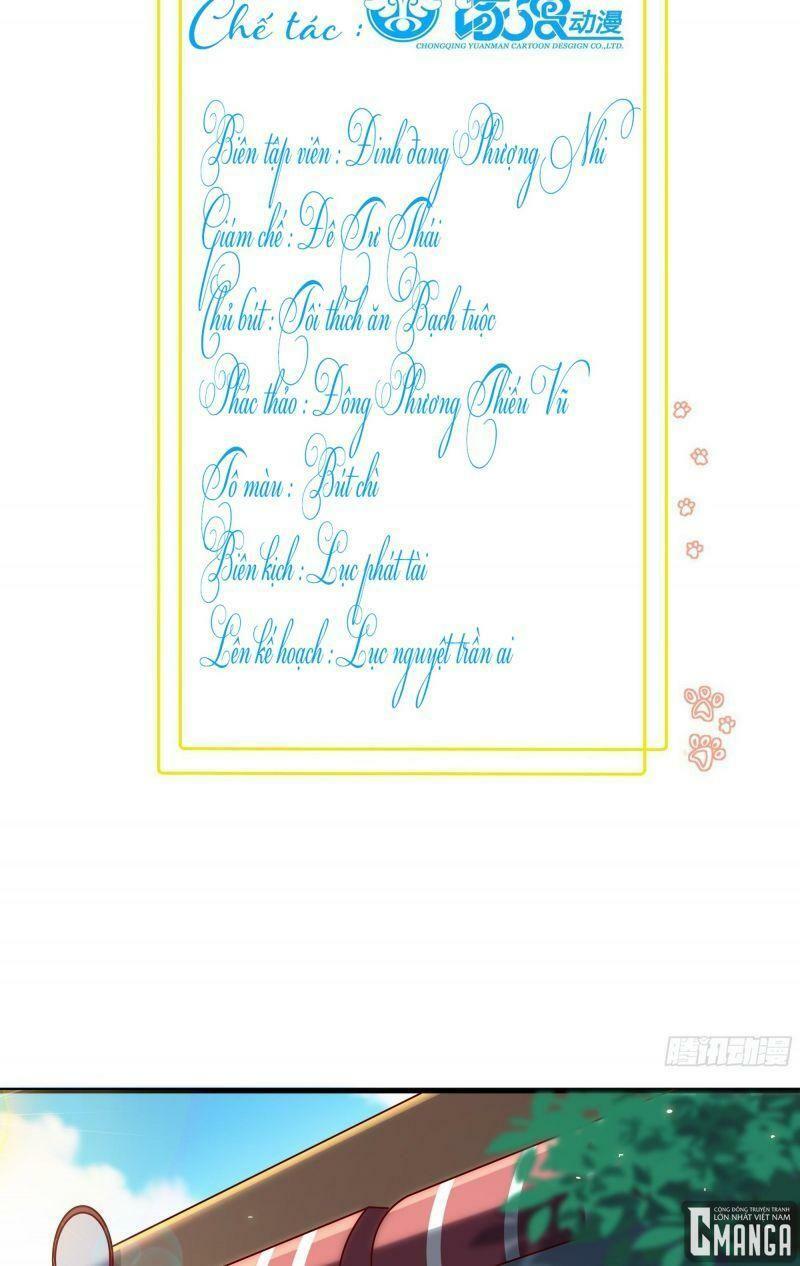 Chế tác :
动漫
CHONGQING YUANMAN CARTOON DESGIGN CO.,LTD.
Biên tập viên : Đinh đang Phượng Nhi
Giám chế : Đê Tư Thái
Chủ bút : Tôi thích ăn Bạch tuộc
Phác thảo : Đông Phương Thiếu Vũ
Tô màu : Bút chì
Biên kịch : Lục phát tài
Lên kế hoạch : Lục nguyệt trần ai
腾讯动漫
CỘNG ĐỒNG TRUYỆN TRANH
LỚN NHẤT VIỆT NAM
CMANGA